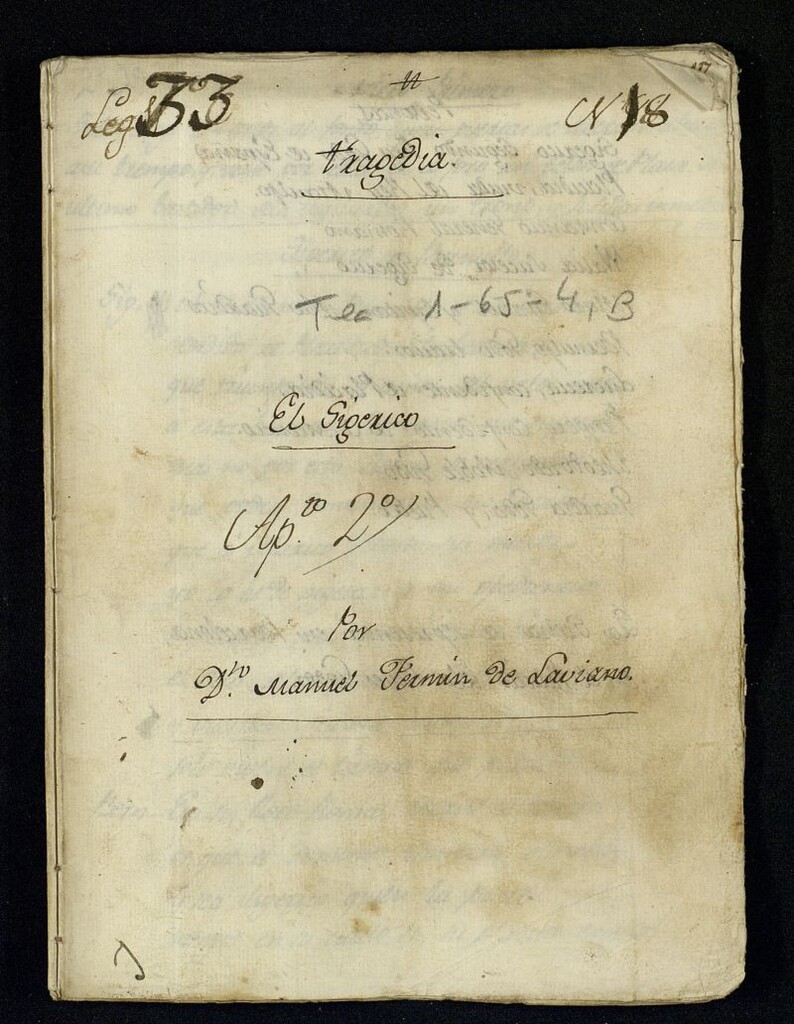 Leg.º 33
N 18
tragedia.
Tea 1-65-4, B
El Sigerico
Ap.to 2º
Por
D.n Manuel Fermin de Laviano.